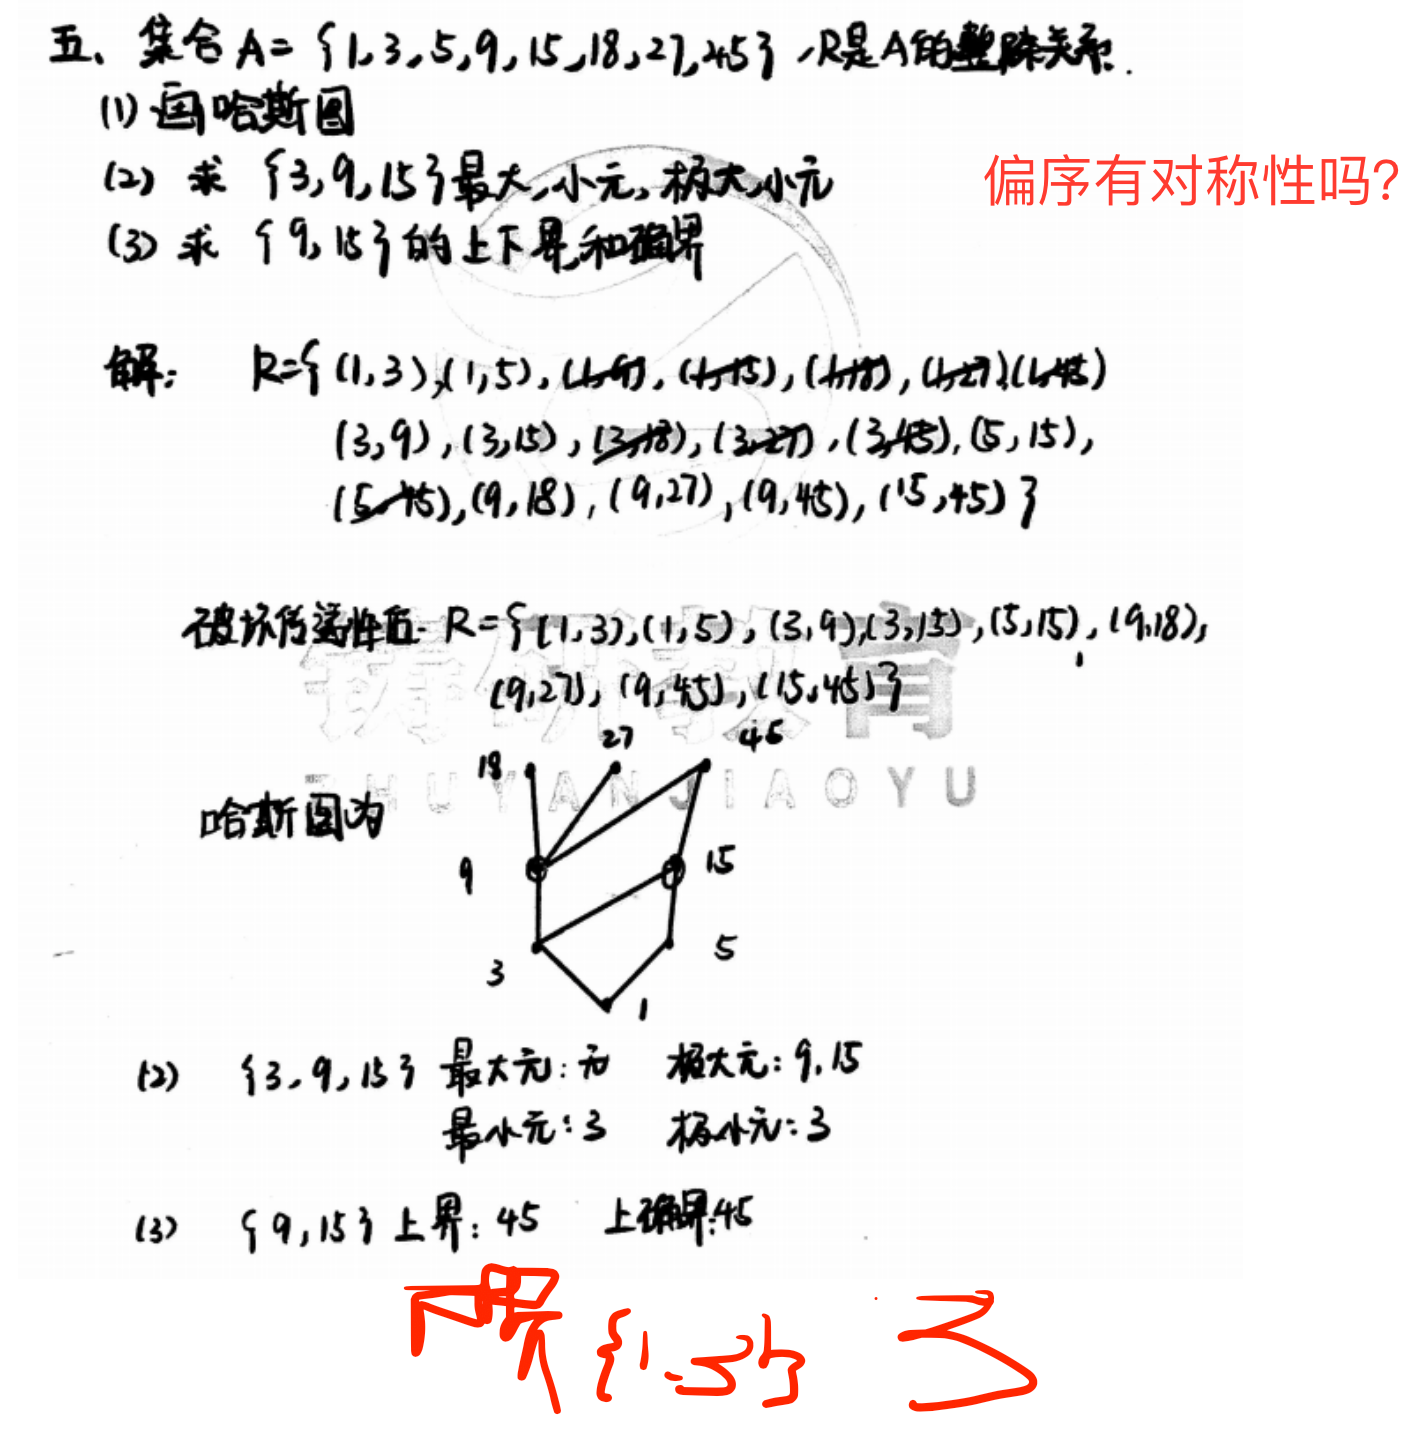 五、集合 A= {1,3,5,9,15,18,27,45} ,R是A的整除关系.
(1) 画哈斯图
(2) 求 {3,9,15}最大,小元,极大,小元
偏序有对称性吗?
(3) 求 {9,15}的上下界和确界
解: R={(1,3),(1,5),(1,9),(1,15),(1,18),(1,27),(1,45)
(3,9),(3,15),(3,18),(3,27),(3,45),(5,15),
(5,45),(9,18),(9,27),(9,45),(15,45)}
破坏传递性后. R={(1,3),(1,5),(3,9),(3,15),(5,15),(9,18),
(9,27),(9,45),(15,45)}
铸研教育
ZHUYANJIAOYU
哈斯图为
18 27 45
9 15
3 5
1
(2) {3,9,15} 最大元:无 极大元:9,15
最小元:3 极小元:3
(3) {9,15}上界:45 上确界:45
下界{1,3} 3